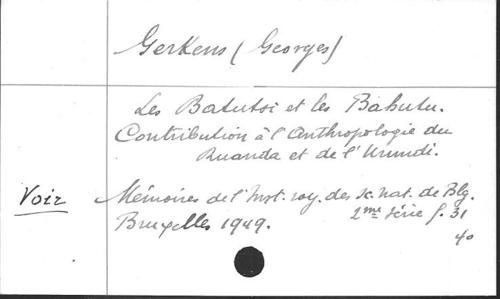 Gerkens (Georges)
Les Batutsi et les Bahutu.
Contribution à l'Anthropologie du
Ruanda et de l'Urundi.
Voir Mémoires de l'Inst. roy. des Sc. nat. de Blg.
Bruxelles 1949. 2me série f. 31
40